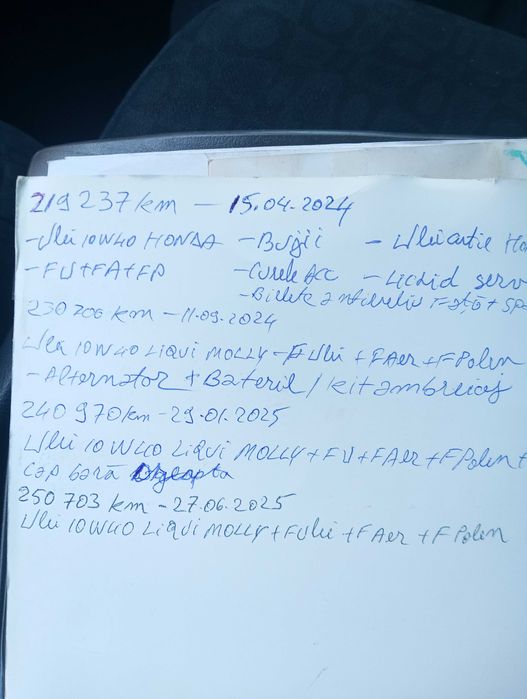 219 237 km — 15.04.2024
- Ulei 10W40 HONDA - Bujii - Ulei cutie Ho
- FU+FA+FP - Curele Acc - Lichid serv
- Bielete antiruliu Față + Sp
230 706 km - 11.09.2024
Ulei 10W40 LIQUI MOLLY - F Ulei + F Aer + F Polen
- Alternator + Baterie / kit ambreiaj
240 970 km - 29.01.2025
Ulei 10W40 LIQUI MOLLY + FU + F Aer + F Polen +
Cap bară
250 703 km - 27.06.2025
Ulei 10W40 LIQUI MOLLY + F Ulei + F Aer + F Polen